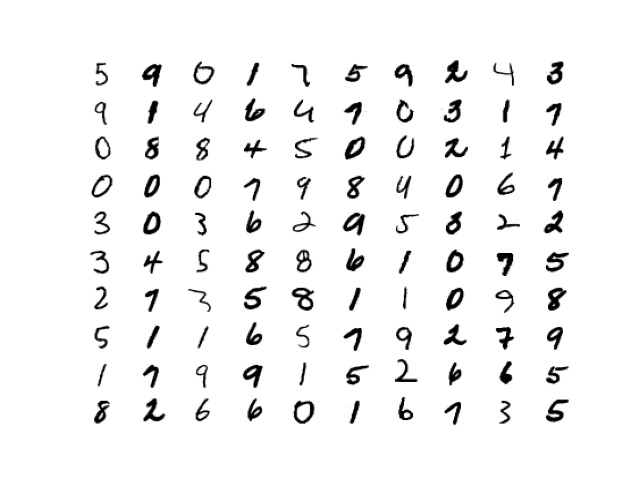 5 9 0 1 7 5 9 2 4 3
9 1 4 6 4 7 0 3 1 7
0 8 8 4 5 0 0 2 1 4
0 0 0 7 9 8 4 0 6 7
3 0 3 6 2 9 5 8 2 2
3 4 5 8 8 6 1 0 7 5
2 7 3 5 8 1 1 0 9 8
5 1 1 6 5 7 9 2 7 9
1 7 9 9 1 5 2 6 6 5
8 2 6 6 0 1 6 7 3 5